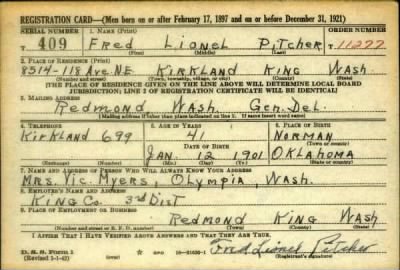 REGISTRATION CARD—(Men born on or after February 17, 1897 and on or before December 31, 1921)
SERIAL NUMBER 1. NAME (Print) ORDER NUMBER
409 Fred Lionel Pitcher T-11277
(First) (Middle) (Last)
2. PLACE OF RESIDENCE (Print)
8514-118 Ave. N.E. Kirkland King Wash
(Number and street) (Town, township, village, or city) (County) (State)
[THE PLACE OF RESIDENCE GIVEN ON THE LINE ABOVE WILL DETERMINE LOCAL BOARD
JURISDICTION; LINE 2 OF REGISTRATION CERTIFICATE WILL BE IDENTICAL]
3. MAILING ADDRESS
Redmond Wash. Gen. Del.
(Mailing address if other than place indicated on line 2. If same insert word same)
4. TELEPHONE 5. AGE IN YEARS 6. PLACE OF BIRTH
Kirkland 699 41 Norman
DATE OF BIRTH (Town or county)
Jan. 12 1901 Oklahoma
(Exchange) (Number) (Mo.) (Day) (Yr.) (State or country)
7. NAME AND ADDRESS OF PERSON WHO WILL ALWAYS KNOW YOUR ADDRESS
Mrs. Vic Myers, Olympia, Wash.
8. EMPLOYER'S NAME AND ADDRESS
King Co. 3rd Dist
9. PLACE OF EMPLOYMENT OR BUSINESS
Redmond King Wash
(Number and street or R. F. D. number) (Town) (County) (State)
I AFFIRM THAT I HAVE VERIFIED ABOVE ANSWERS AND THAT THEY ARE TRUE.
D. S. S. Form 1
(Revised 1-1-42) (over) GPO Fred Lionel Pitcher
(Registrant's signature)